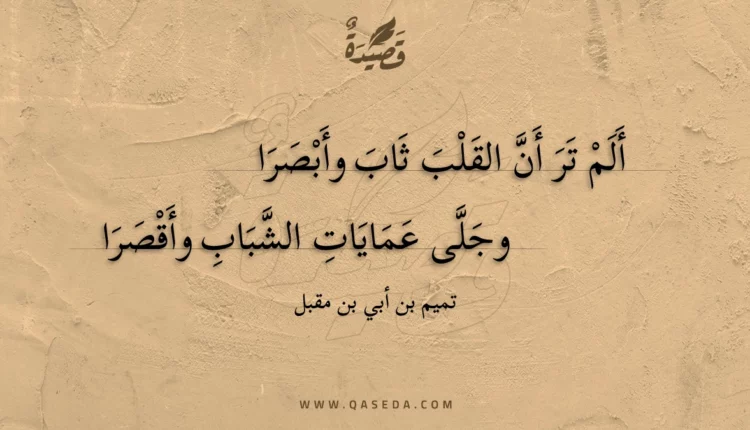 قَصِيدَةٌ
أَلَمْ تَرَ أَنَّ القَلْبَ ثَابَ وأَبْصَرَا
وجَلَّى عَمَايَاتِ الشَّبَابِ وأَقْصَرَا
تميم بن أبي بن مقبل
WWW.QASEDA.COM